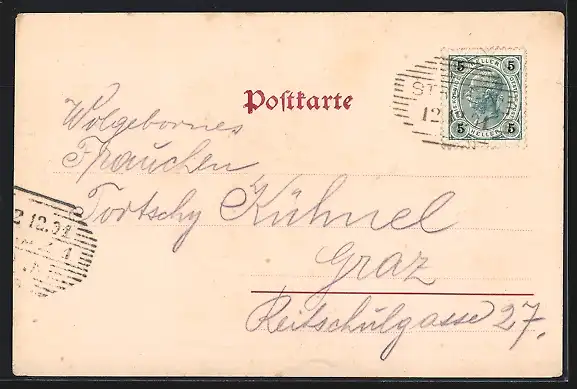 Postkarte
5 HELLER 5
ST
12
5 HELLER 5
Wolgebornes
Frauchen
Tortschy Kühnel
Graz
Reitschulgasse 27.
12.01
1